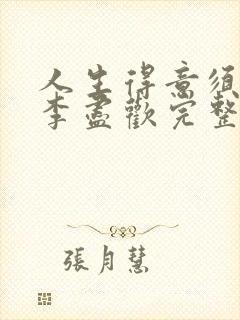 人生得意须
李盡歡完整
張月慧